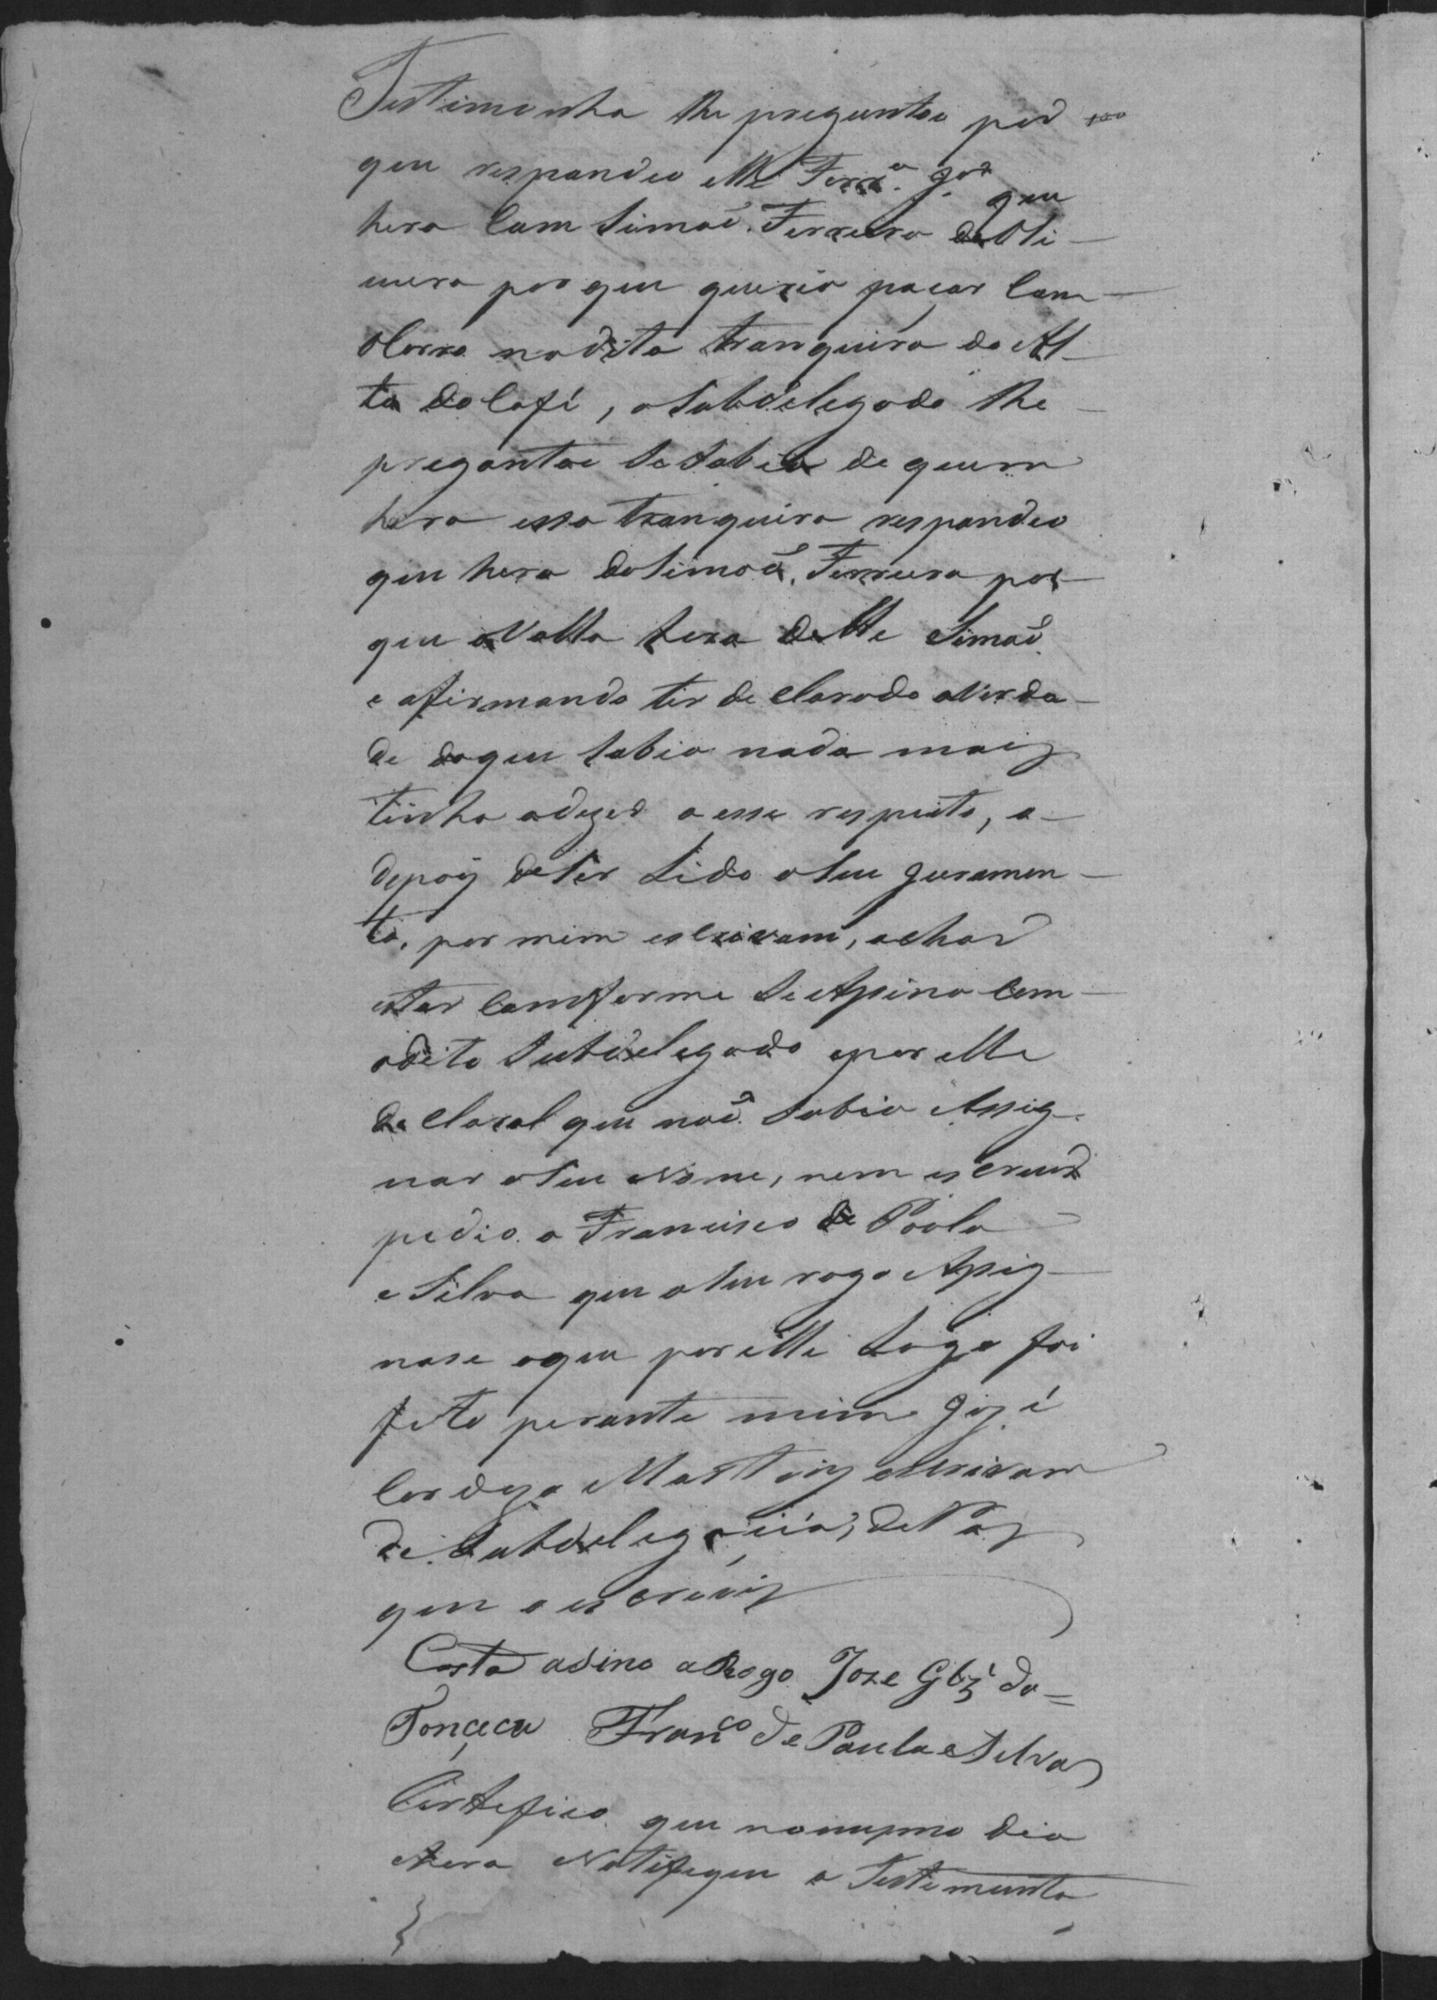 Testimonha lhe preguntou por
que respondeo elle Ferr.ª J.or que
hera Com Simaõ. Ferreira de Oli-
veira por que queria paçar Com
o Carro na dita tranqueira do Al-
to do Café, o Subdelegado lhe
pregontou Se Sabia de quem
hera essa tranqueira respondeo
que hera do Simaõ. Ferreira por
que o Vallo hera delle Simaõ.
e afirmando ter de Clarado a Verda-
de do que Sabia nada maiz
tinha a dizer a esse respeito, e
depois de Ser Lido o Seu Juramen-
to, por mim escrivam, e achar
estar Comforme Se Asina Com
o dito Subdelegado e por elle
de Claral que naõ Sabia Assig-
nar o Seu Nome, nem escrever
pedio a Francisco de Paola
e Silva que o Seu rogo Asig-
nase o que por elle Logo foi
feto perante mim Jozé
Cardozo Martins escrivam
de Subdelegacia, de Paz
que o escreviz
Costa asino a Rogo Joze Glz' da=
Fonçeca Fran.co de Paula e Silva
Certefico que no mesmo dia
e hera Notifequei a Testemunha